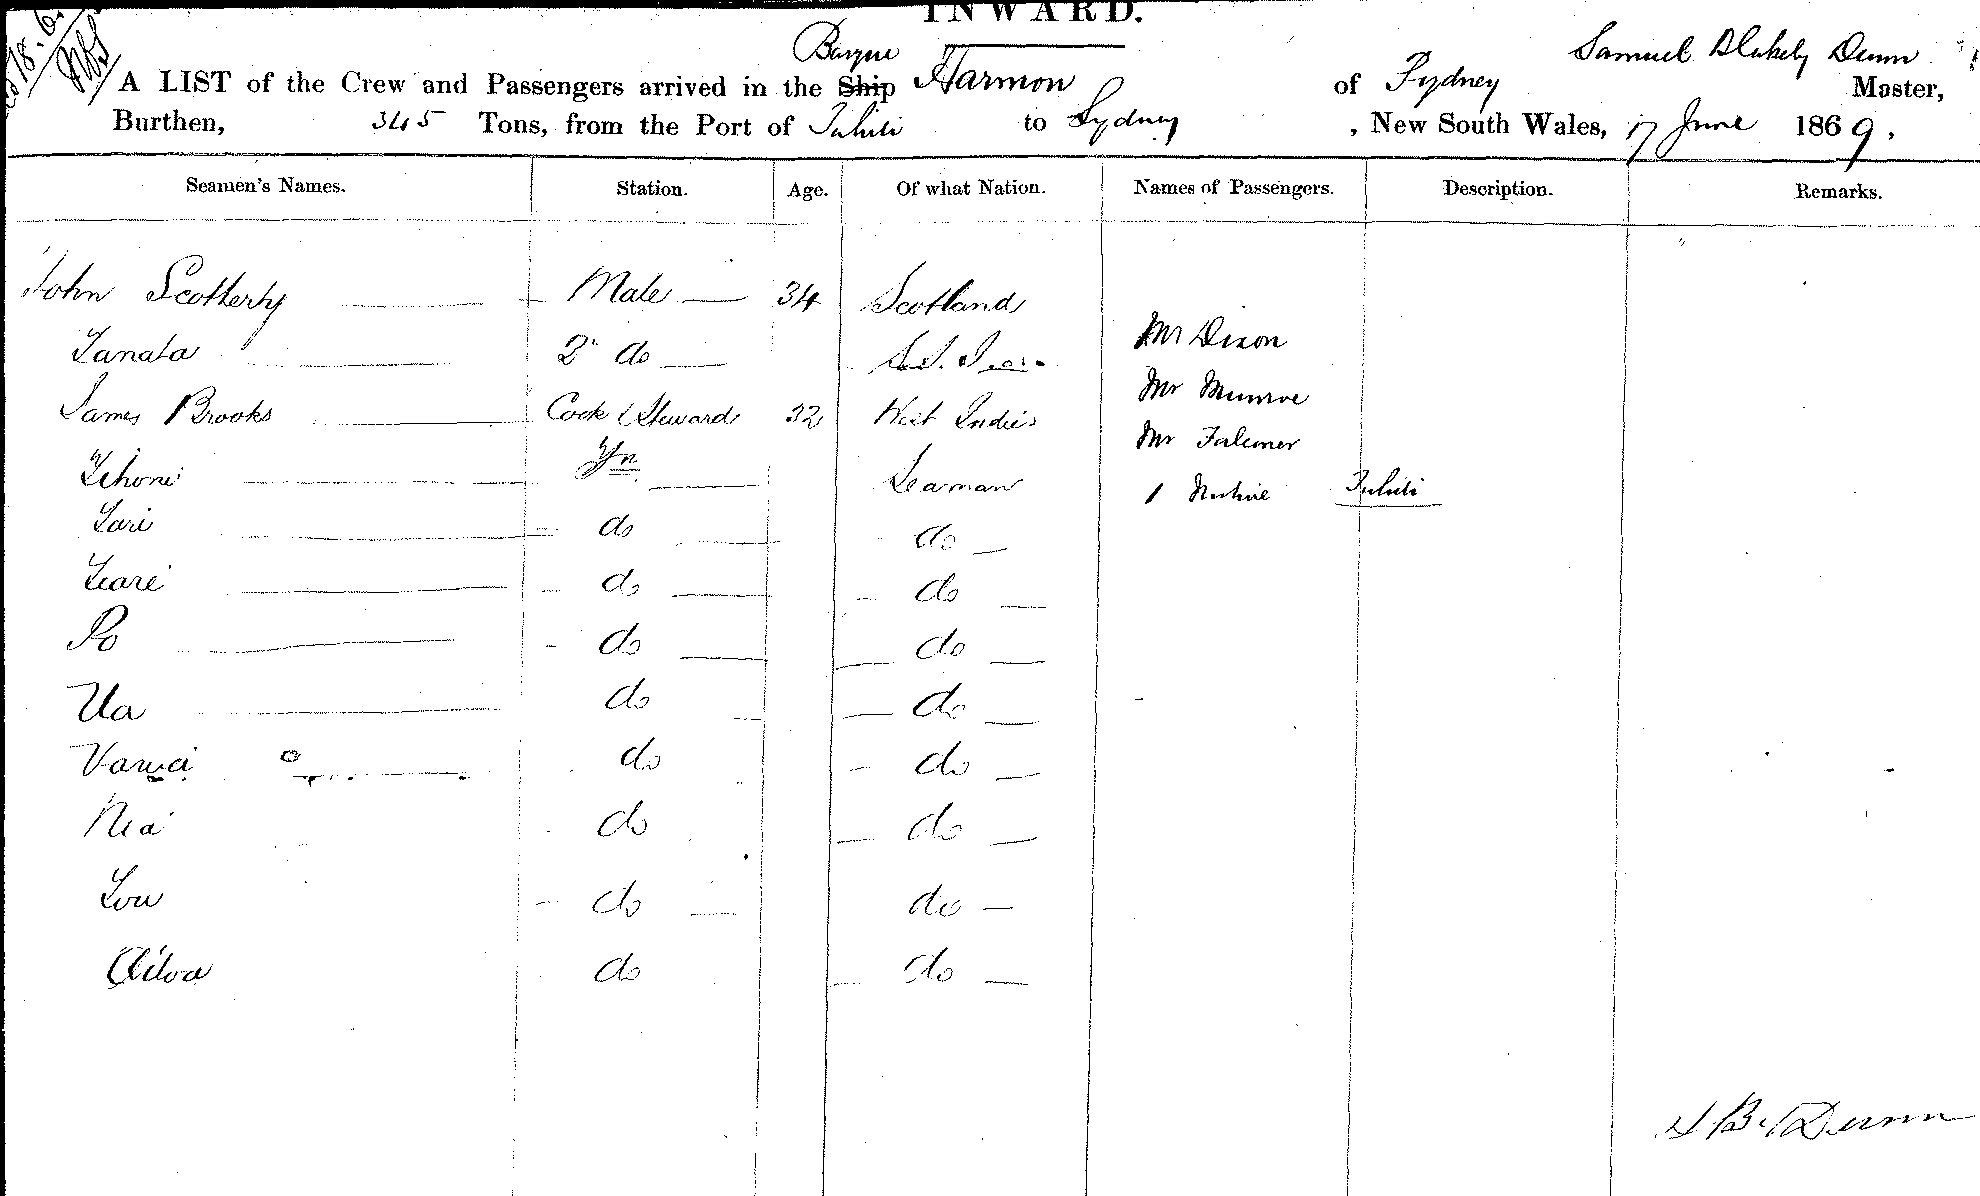 INWARD.
Barque
Samuel Blakely Dunn
A LIST of the Crew and Passengers arrived in the Ship Harmon of Sydney Master,
Burthen, 345 Tons, from the Port of Tahiti to Sydney, New South Wales, 17 June 1869.
Seamen's Names. Station. Age. Of what Nation. Names of Passengers. Description. Remarks.
John Scotterty Mate 34 Scotland
Mr Dixon
Tanata 2d do
Mr Munroe
James Brooks Cook & Steward 32 West Indies
Mr Falconer
Seaman
1 Native Tahiti
Tari do do
Teare do do
Po do do
Ua do do
do do
Nea do do
Tou do do
do do
S B Dunn